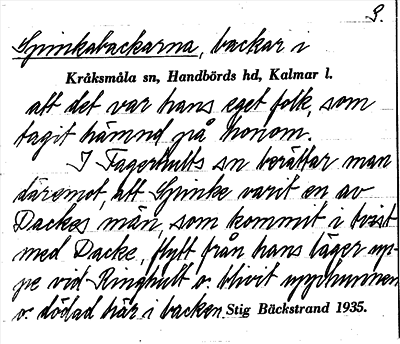 9.
Spinkabackarna, backar i
Kråksmåla sn, Handbörds hd, Kalmar l.
att det var hans eget folk, som
tagit hämnd på honom.
I Fagerhults sn berättar man
däremot, att Spinke varit en av
Dackes män, som kommit i tvist
med Dacke, flytt från hans läger up-
pe vid Ringhult o. blivit upphunnen
o. dödad här i backen. Stig Bäckstrand 1935.